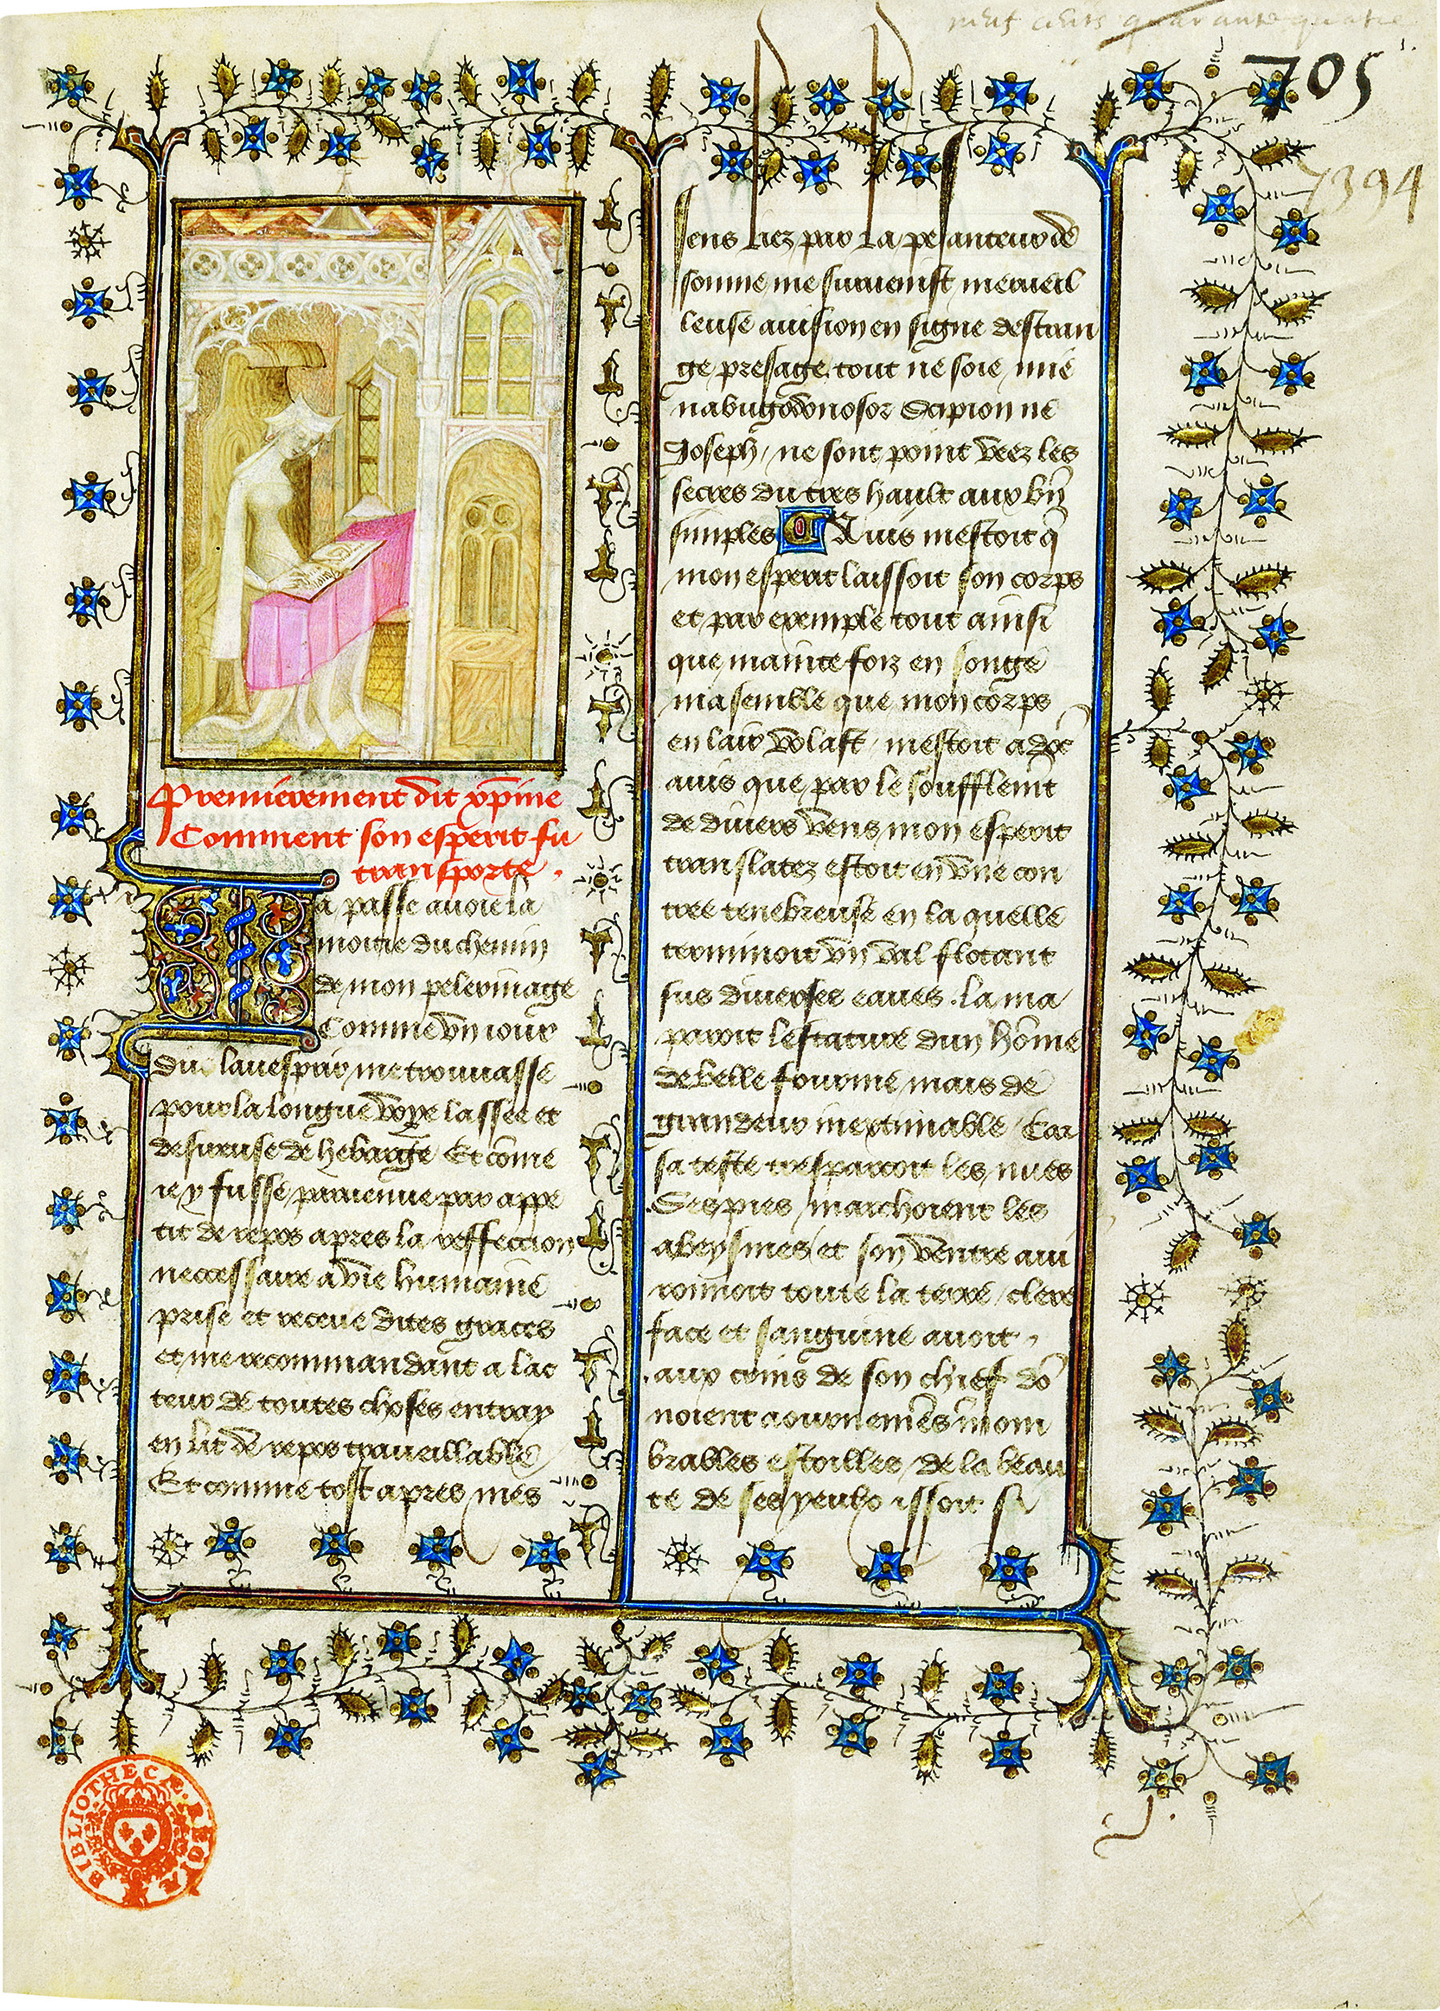 neuf cents quarante quatre
705
7394
Premierement dit xpine
Comment son esperit fu
transporte .
Ja passe avoie la
moitie du chemin
de mon pelerinage
Comme vn iour
du lauespray me trouuasse
pour la longue voye lassee et
desireuse de hebarge Et cõme
ie y fusse paruenue par appe
tit de repos apres la reffeccion
neccessaire a vie humaine
prise et receue dites graces
et me recommandant a lac
teur de toutes choses entray
en lit de repos traueillable
Et comme tost apres mes
sens liez par la pesanteur de
somme me suruenist merueil
leuse auision en signe destran
ge presage tout ne soie mie
nabugodonosor Scipion ne
Joseph / ne sont point veez les
secres du tres hault aux bñ
simples Auis mestoit q̃
mon esperit laissoit son corps
et par exemple tout ainsi
que mainte foiz en songe
ma semble que mon corps
en lair volast / mestoit adõc
auis que par le soufflemt
de diuers vens mon esperit
translatez estoit en vne con
tree tenebreuse en la quelle
terminoit vn val flotant
sus diuerses eaues . la ma
paroit lestature dun hõme
de belle fourme mais de
grandeur inextimable / Car
sa teste trespassoit les nues
Ses pies marchoient les
abeysmes et son ventre aui
ronnoit toute la terre / clere
face et sanguine auoit ,
aux coins de son chief dõ
noient aournemẽs innom
brables estoilles / de la beau
te de ses yeulx issoit si
BIBLIOTHECÆ REGIÆ